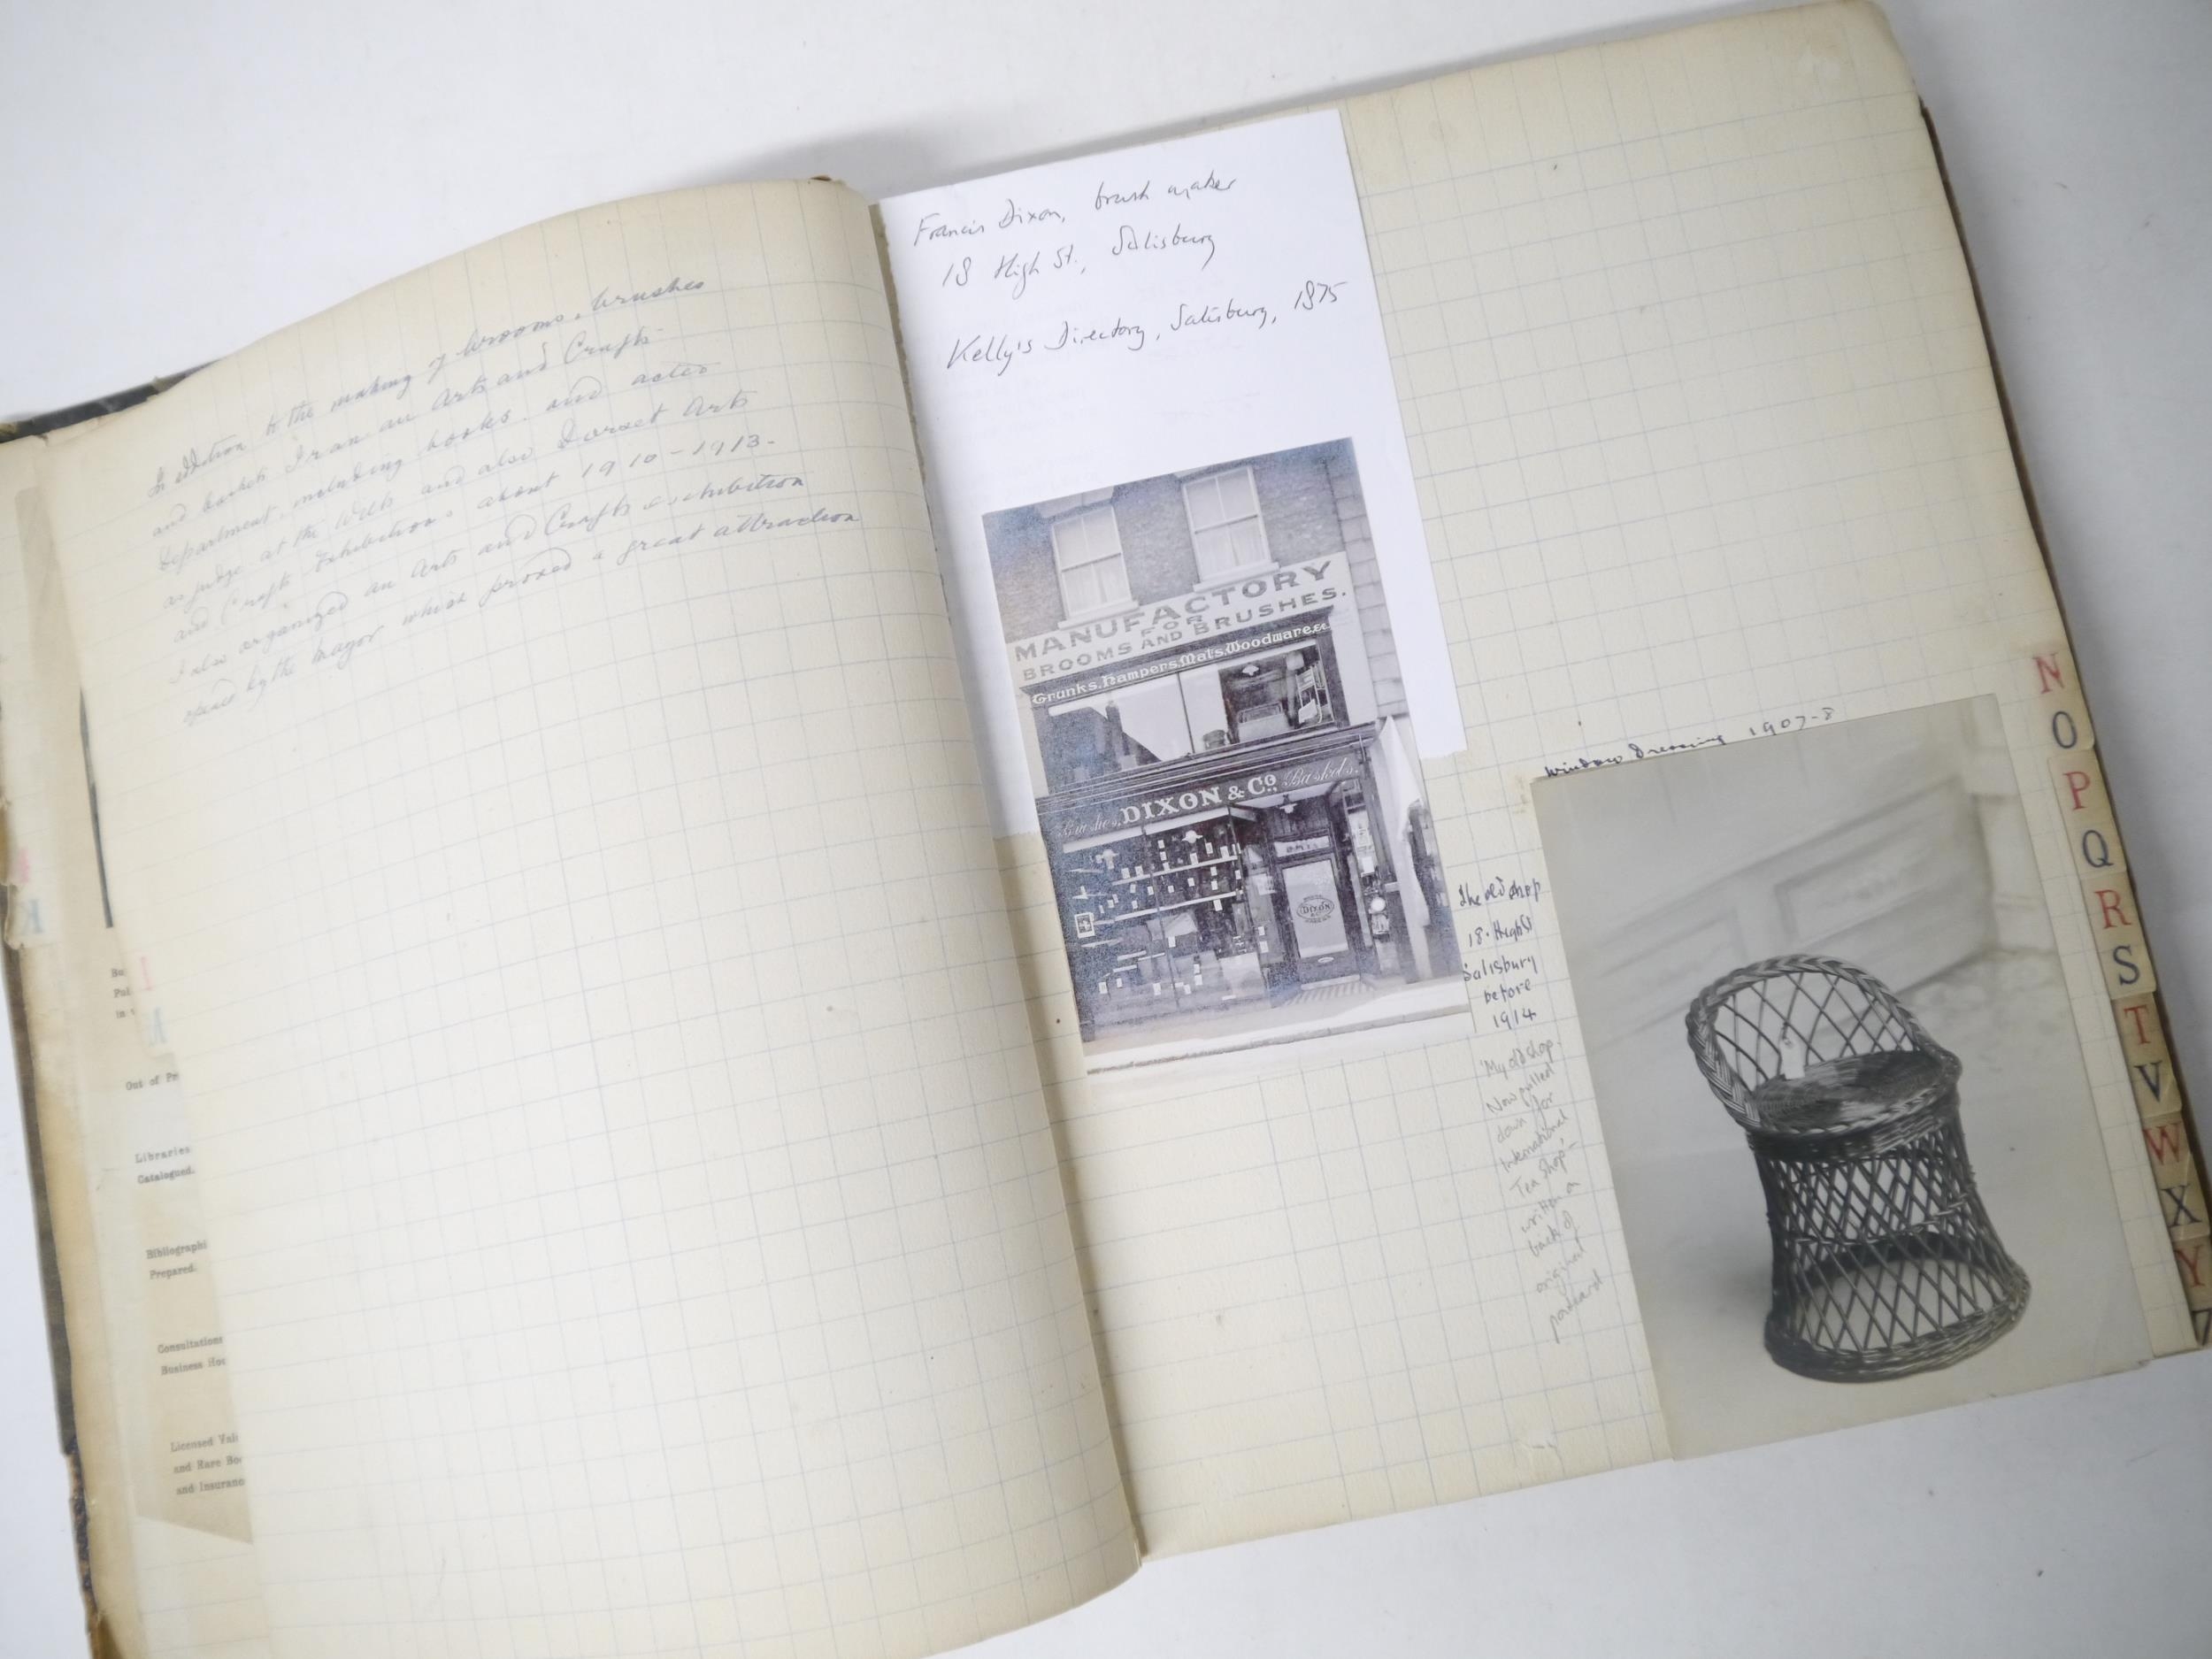 In addition to the making of brooms, brushes
and baskets I ran an Arts and Crafts
department, including books. and acted
as judge at the Wilts and also Dorset Arts
and Crafts Exhibitions about 1910-1913.
I also organized an Arts and Crafts exhibition
opened by the Mayor which proved a great attraction
Out of Pr
Libraries
Catalogued.
Bibliographi
Prepared.
Consultations
Business Hou
Licensed Val
and Rare Bo
and Insuranc
Francis Dixon, brush maker
18 High St., Salisbury
Kelly's Directory, Salisbury, 1875
MANUFACTORY
FOR
BROOMS AND BRUSHES.
Trunks, Hampers, Mats, Woodware &c
Brushes, DIXON & Co. Baskets.
DIXON
The old shop
18. High St
Salisbury
before
1914
'My old shop-
Now pulled
down for
International
Tea Shop'-
written on
back of
original
postcard
Window Dressing 1907-8
N
O
P
Q
R
S
T
V
W
X
Y